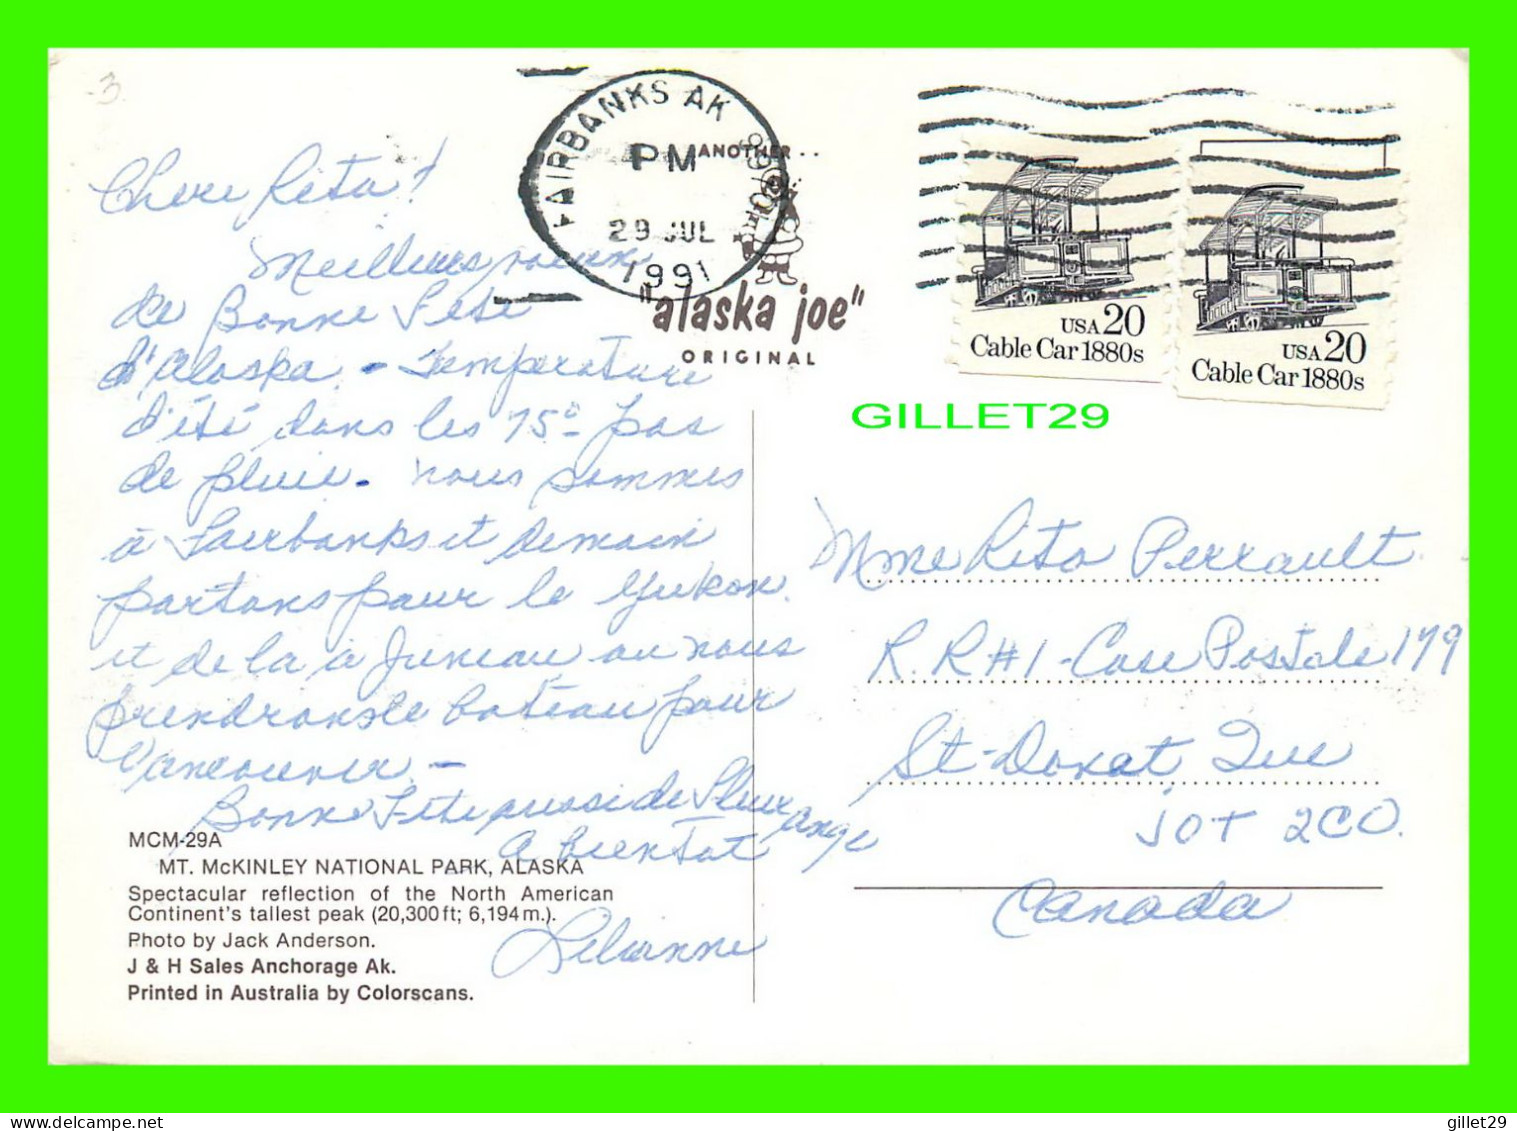 3
FAIRBANKS AK
PM
29 JUL
1991
ANOTHER..
"alaska joe"
ORIGINAL
USA 20
Cable Car 1880s
USA 20
Cable Car 1880s
GILLET29
Chere Rita!
Meilleurs voeux
de Bonne Fete
d'Alaska. - Temperature
d'été dans les 75° pas
de pluie. nous sommes
à Fairbanks et demain
partons pour le Yukon.
et de la à Juneau ou nous
prendrons le bateau pour
Vancouver. -
Bonne Fete aussi de Fleur ange
A bientot
Lilianne
Mme Rita Perrault
R.R #1 - Case Postale 179
St-Donat Que
JOT 2CO.
Canada
MCM-29A
MT. McKINLEY NATIONAL PARK, ALASKA
Spectacular reflection of the North American
Continent's tallest peak (20,300 ft; 6,194 m.).
Photo by Jack Anderson.
J & H Sales Anchorage Ak.
Printed in Australia by Colorscans.
gillet29